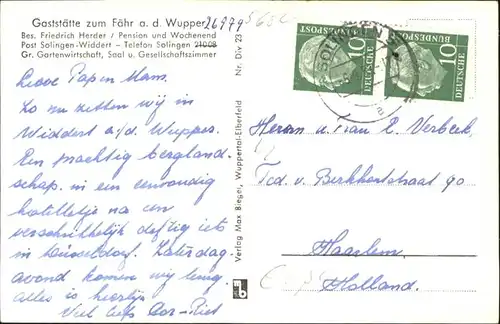 Gaststätte zum Fähr a. d. Wupper
Bes. Friedrich Herder / Pension und Wochenend
Post Solingen-Widdert - Telefon Solingen 21008
Gr. Gartenwirtschaft, Saal u. Gesellschaftszimmer
26979
Lieve Pap en Mam.
Zo nu zitten wij in
Widdert a/d. Wupper.
Een prachtig bergland-
schap. in een eenvoudig
hotelletje na een
verschrikkelijk deftig iets
in Düsseldorf. Zaterdag-
avond komen wij terug.
Alles is heerlijk!
Veel liefs Cor-Riet
Nr. Div 23
Verlag Max Bieger, Wuppertal-Elberfeld
10
DEUTSCHE
BUNDESPOST
10
DEUTSCHE
BUNDESPOST
Herrn u Frau E. Verbeek,
v. Berkhoutstraat 90
Haarlem
Holland.